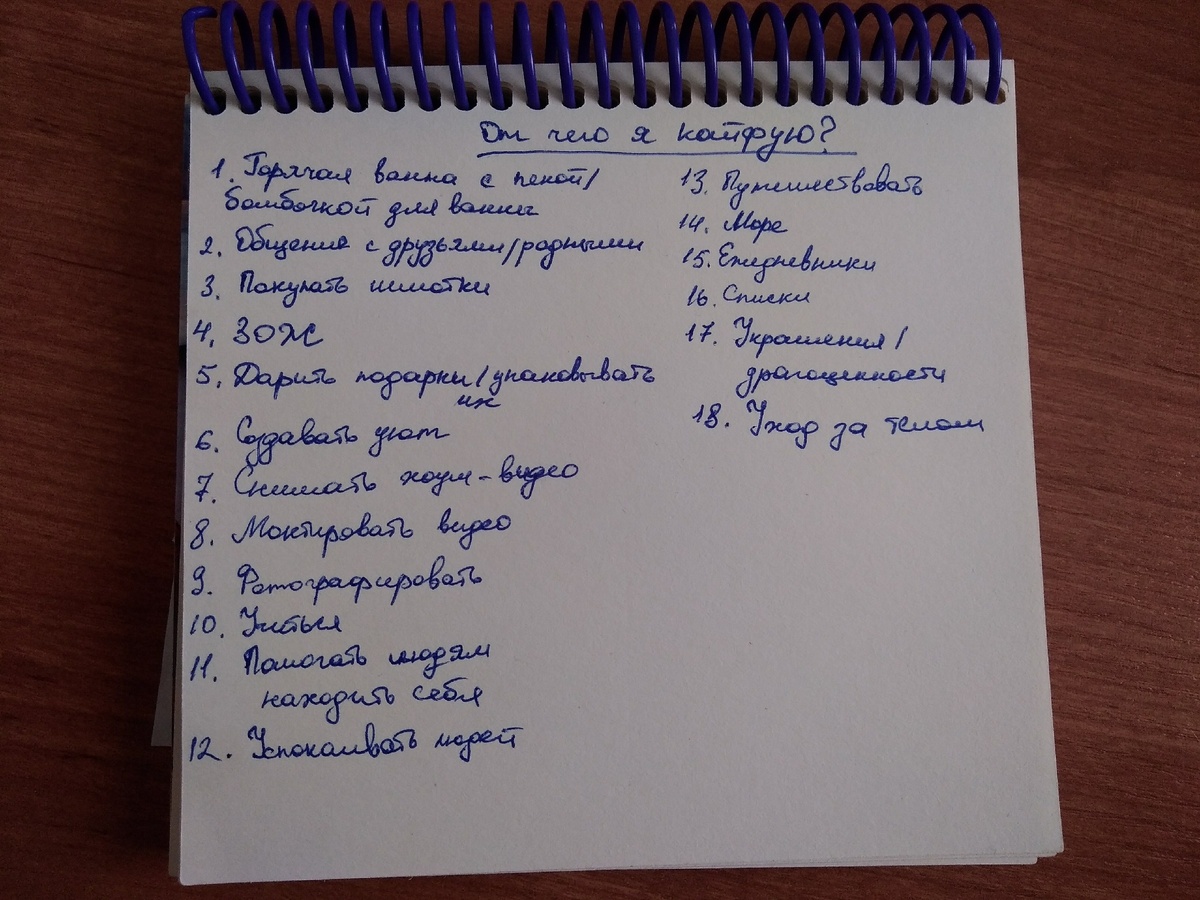 От чего я кайфую?
1. Горячая ванна с пеной/
бомбочкой для ванны
2. Общение с друзьями/родными
3. Покупать шмотки
4. ЗОЖ
5. Дарить подарки/упаковывать
их
6. Создавать уют
7. Снимать хоум-видео
8. Монтировать видео
9. Фотографировать
10. Учиться
11. Помогать людям
находить себя
12. Успокаивать людей
13. Путешествовать
14. Море
15. Ежедневники
16. Списки
17. Украшения/
драгоценности
18. Уход за телом